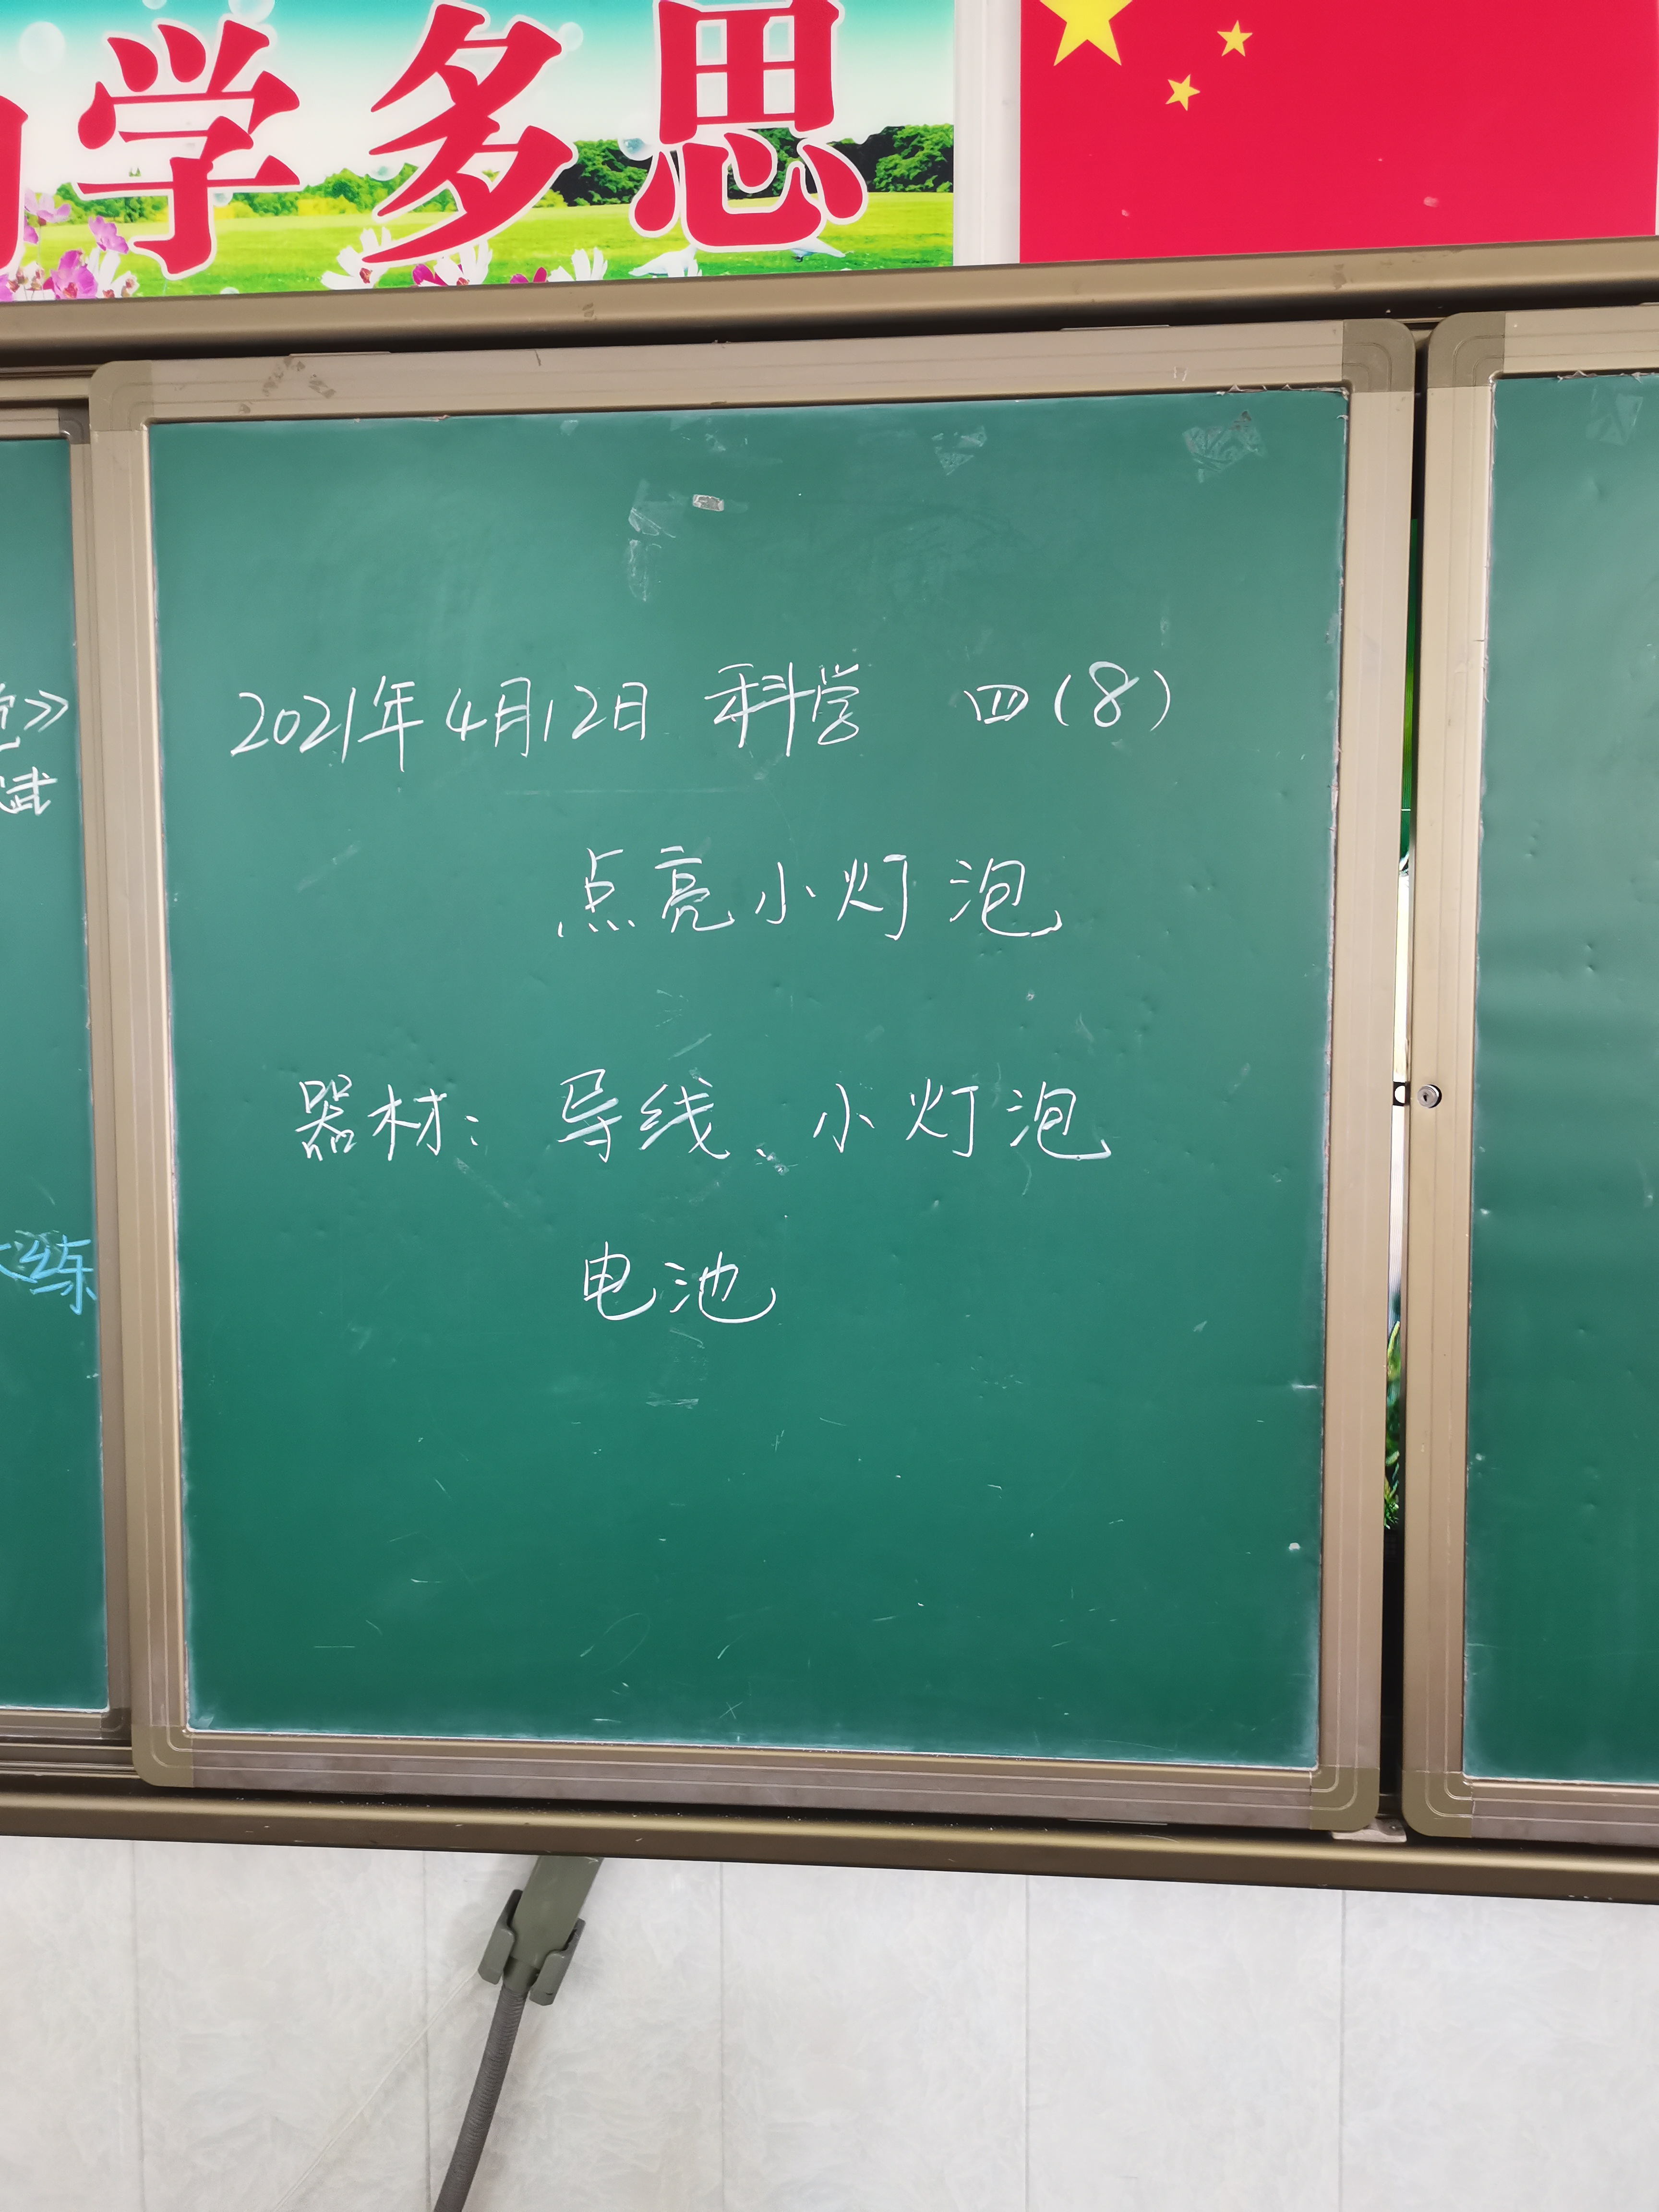 学多思
2021年4月12日 科学 四(8)
点亮小灯泡
器材：导线、小灯泡
电池
试
练